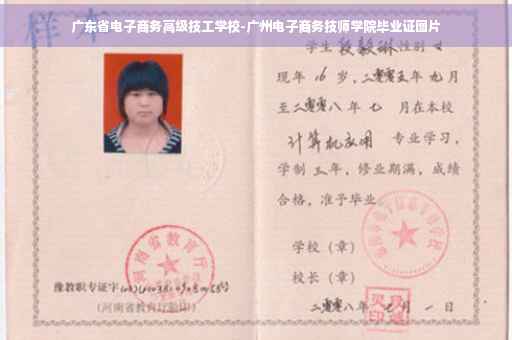 广东省电子商务高级技工学校-广州电子商务技师学院毕业证图片
样本
学生 段毅琳 性别 女
现年 16 岁，二零零五年 九月
至二零零八年 七 月在本校
计算机应用 专业学习，
学制 三 年，修业期满，成绩
合格，准予毕业
学校（章）
校长（章）
二零零八年 月 一 日
河南省教育厅
豫教职专证字
(河南省教育厅验印)